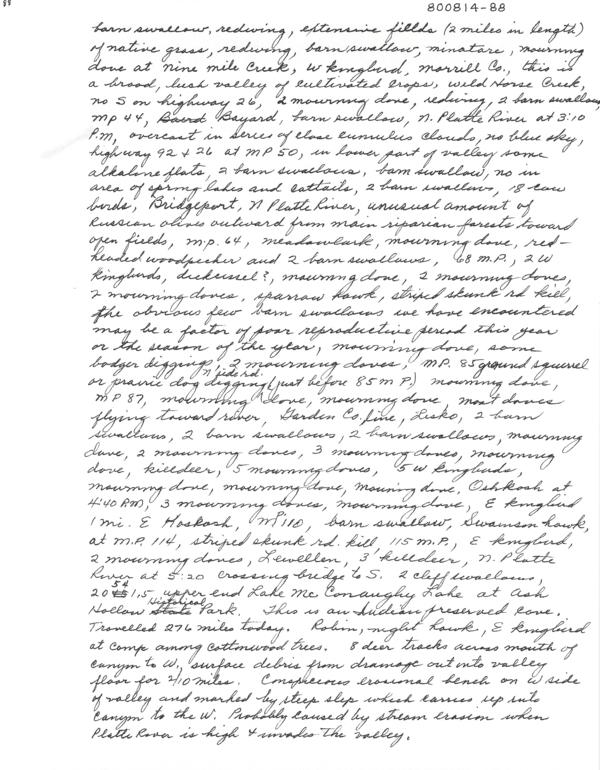 88
800814-88
barn swallow, redwing, extensive fields (2 miles in length)
of native grass, redwing, barn swallow, minatare, mourning
dove at nine mile Creek, W kingbird, Morrill Co., this is
a broad, lush valley of cultivated crops, Wild Horse Creek,
no S on highway 26, 2 mourning dove, redwing, 2 barn swallow,
MP 44, Bayard, barn swallow, N. Platte River at 3:10
P.M, overcast in series of close cumulus clouds, no blue sky,
highway 92 & 26 at MP 50, in lower part of valley some
alkaline flats, 2 barn swallows, barn swallow, no in
area of spring lakes and cattails, 2 barn swallow, 8 cow
birds, Bridgeport, N Platte River, unusual amount of
Russian olives outward from main riparian forests toward
open fields, m.p. 64, meadowlark, mourning dove, red-
headed woodpecker and 2 barn swallows, 68 M.P., 2 W
kingbirds, dickcissel?, mourning dove, 2 mourning doves,
2 mourning doves, sparrow hawk, striped skunk rd kill,
the obvious few barn swallows we have encountered
may be a factor of poor reproductive period this year
or the season of the year, mourning dove, some
badger digging, 2 mourning doves, MP. 85 ground squirrel
or prairie dog digging N side rd. (just before 85 M P.) mourning dove,
MP 87, mourning dove, mourning dove, most doves
flying toward river, Garden Co. line, Lisko, 2 barn
swallows, 2 barn swallows, 2 barn swallows, mourning
dove, 2 mourning doves, 3 mourning doves, mourning
dove, killdeer, 5 mourning doves, 5 W kingbirds,
mourning dove, mourning dove, mourning dove, Oshkosh at
4:40 PM, 3 mourning doves, mourning dove, E kingbird
1 mi. E Hoskosh, MP 110, barn swallow, Swainson hawk,
at M.P. 114, striped skunk rd. kill, 115 M.P., E kingbird,
2 mourning doves, Lewellen, 3 killdeer, N. Platte
River at 5:20 crossing bridge to S. 2 cliff swallows,
upper end Lake Mc Conaughy Lake at Ash
Hollow State Historical Park. This is an Indian preserved cave.
Travelled 276 miles today. Robin, night hawk, E kingbird
at camp among cottonwood trees. 8 deer tracks across mouth of
canyon to W, surface debris from drainage out into valley
floor for 2/10 miles. Conspicuous erosional bench on W side
of valley and marked by steep slip which carries up into
canyon to the W. Probably caused by stream erosion when
Platte River is high & invades the valley.